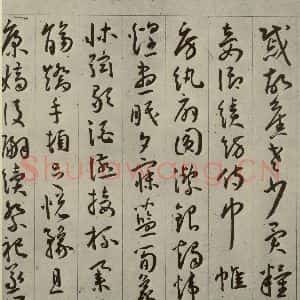 戚故舊老少異糧
妾御績紡侍巾帷
房紈扇圓潔銀燭煒
煌晝眠夕寐藍筍象
床弦歌酒讌接杯舉
觴矯手頓足悅豫且
康嫡後嗣續祭祀蒸